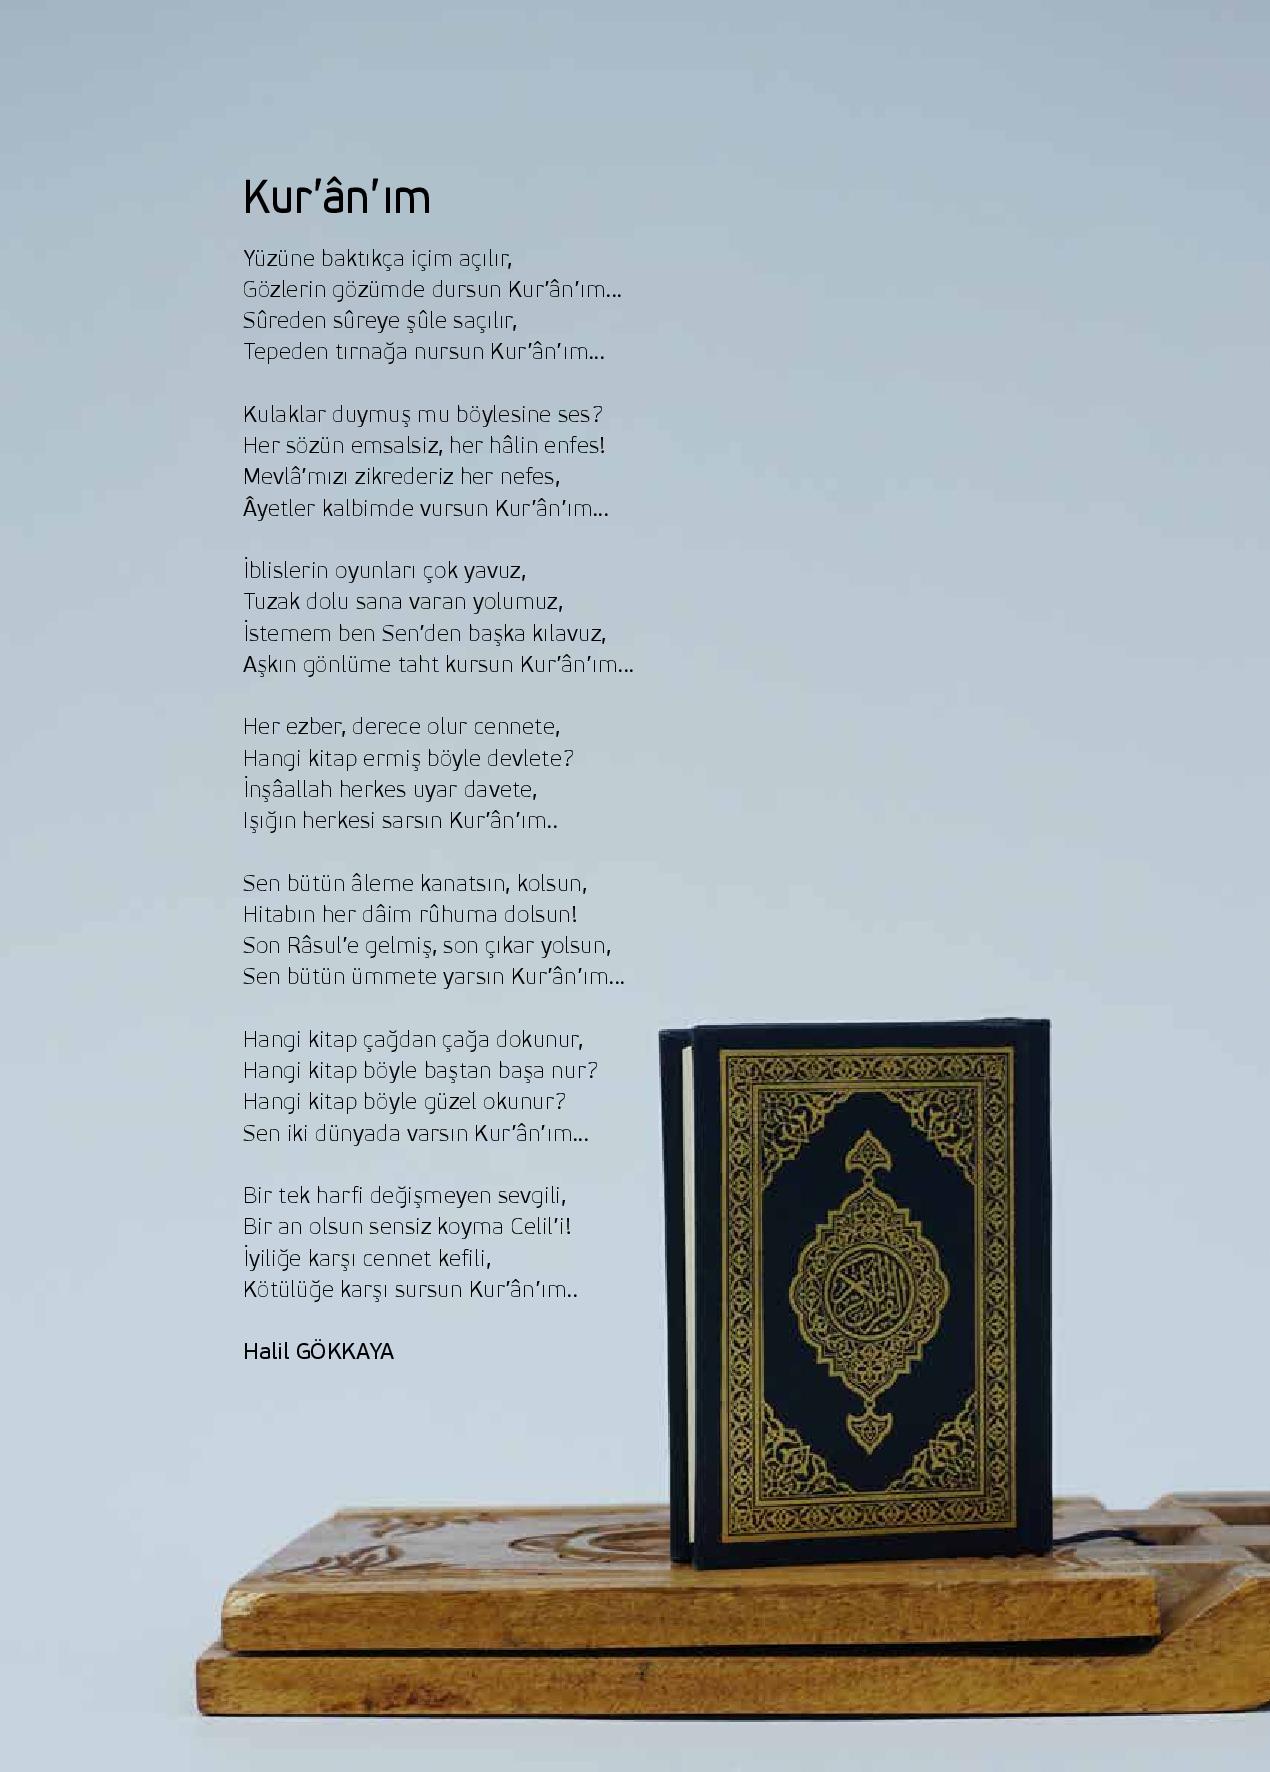 Kur’ân’ım
Yüzüne baktıkça içim açılır,
Gözlerin gözümde dursun Kur’ân’ım...
Sûreden sûreye şûle saçılır,
Tepeden tırnağa nursun Kur’ân’ım...
Kulaklar duymuş mu böylesine ses?
Her sözün emsalsiz, her hâlin enfes!
Mevlâ’mızı zikrederiz her nefes,
Âyetler kalbimde vursun Kur’ân’ım...
İblislerin oyunları çok yavuz,
Tuzak dolu sana varan yolumuz,
İstemem ben Sen’den başka kılavuz,
Aşkın gönlüme taht kursun Kur’ân’ım...
Her ezber, derece olur cennete,
Hangi kitap ermiş böyle devlete?
İnşâallah herkes uyar davete,
Işığın herkesi sarsın Kur’ân’ım..
Sen bütün âleme kanatsın, kolsun,
Hitabın her dâim rûhuma dolsun!
Son Râsul’e gelmiş, son çıkar yolsun,
Sen bütün ümmete yarsın Kur’ân’ım...
Hangi kitap çağdan çağa dokunur,
Hangi kitap böyle baştan başa nur?
Hangi kitap böyle güzel okunur?
Sen iki dünyada varsın Kur’ân’ım...
Bir tek harfi değişmeyen sevgili,
Bir an olsun sensiz koyma Celil’i!
İyiliğe karşı cennet kefili,
Kötülüğe karşı sursun Kur’ân’ım..
Halil GÖKKAYA